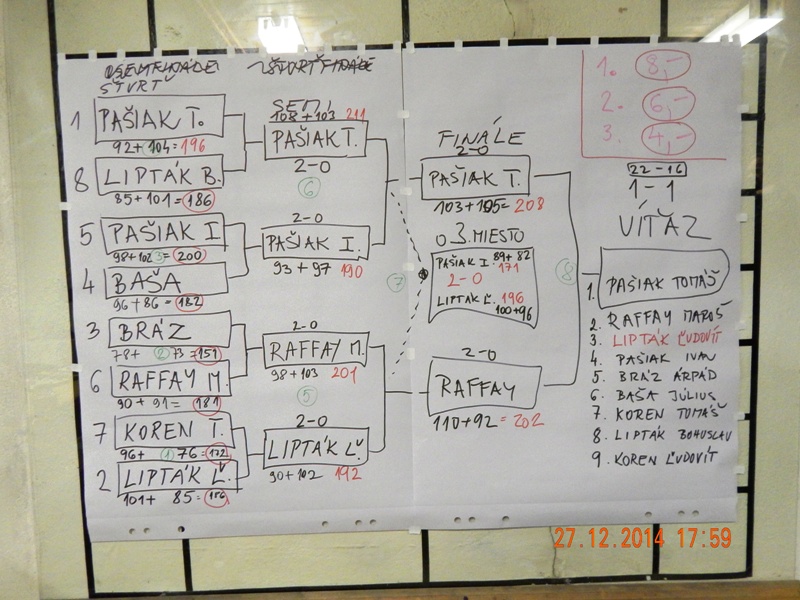 ŠTVRŤ
1 PAŠIAK T.
92+104=196
8 LIPTÁK B.
85+101=186
5 PAŠIAK I
98+102 3=200
4 BAŠA
96+86=182
3 BRÁZ
78+ 2 73=151
6 RAFFAY M.
90+91=181
7 KOREN T.
96+ 1 76=172
2 LIPTÁK Ľ.
101+ 85=186
SEMI
108+103 211
PAŠIAK T.
2-0
6
2-0
PAŠIAK I.
93+97 190
2-0
RAFFAY M.
98+103 201
5
2-0
LIPTÁK Ľ.
90+102 192
FINÁLE
2-0
PAŠIAK T.
103+105=208
O 3. MIESTO
PAŠIAK I. 89+82
171
2-0
LIPTÁK Ľ. 196
100+96
7
8
2-0
RAFFAY
110+92=202
1. 8,-
2. 6,-
3. 4,-
22-16
1-1
VÍŤAZ
1. PAŠIAK TOMÁŠ
2. RAFFAY MAROŠ
3. LIPTÁK ĽUDOVÍT
4. PAŠIAK IVAN
5. BRÁZ ÁRPÁD
6. BAŠA JÚLIUS
7. KOREN TOMÁŠ
8. LIPTÁK BOHUSLAV
9. KOREN ĽUDOVÍT
27.12.2014 17:59